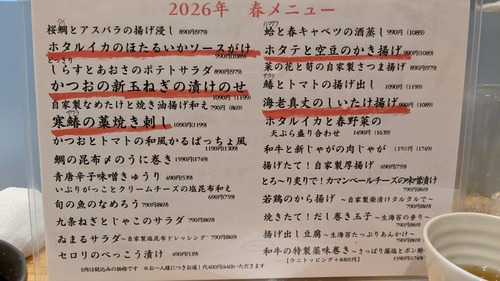 2026年 春メニュー
桜鯛とアスパラの揚げ浸し 890円(979)
ホタルイカのほたるいかソースがけ 990円(1089)
どっさり
しらすとあおさのポテトサラダ 890円(979)
かつおの新玉ねぎの漬けのせ 1090円(1199)
自家製なめたけと焼き油揚げ和え 790円(869)
寒鰆の藁焼き刺し 1090円(1199)
かつおとトマトの和風かるぱっちょ風 1190円(1309)
鯛の昆布〆のうに巻き 1590円(1749)
青唐辛子味噌きゅうり 490円(539)
いぶりがっことクリームチーズの塩昆布和え 690円(759)
旬の魚のなめろう 790円(869)
九条ねぎとじゃこのサラダ 790円(869)
ぬまるサラダ~自家製塩昆布ドレッシング~ 790円(869)
セロリのべっこう漬け 490円(539)
()内は税込みの価格です ※お一人様につきお通し代400円(440)いただきます
ハマグリ
蛤と春キャベツの酒蒸し 990円(1089)
ホタテと空豆のかき揚げ 990円(1089)
菜の花と筍の自家製さつま揚げ 890円(979)
サワラ
鰆とトマトの揚げ出し 1090円(1199)
海老真丈のしいたけ揚げ 990円(1089)
ホタルイカと春野菜の
天ぷら盛り合わせ 1490円(1639)
和牛と新じゃがの肉じゃが 1590円(1749)
揚げたて!自家製厚揚げ 690円(759)
とろ~り炙りで!カマンベールチーズの味噌漬け 790円(869)
若鶏のから揚げ ~自家製柴漬けタルタルで~ 790円(869)
焼きたて!だし巻き玉子 ~生海苔の香り~ 790円(869)
揚げ出し豆腐 ~生海苔たっぷりあんかけ~ 790円(869)
和牛の特製薬味巻き ~さっぱり藻塩とポン酢 1590円(1749)
【ウニトッピング+880円】